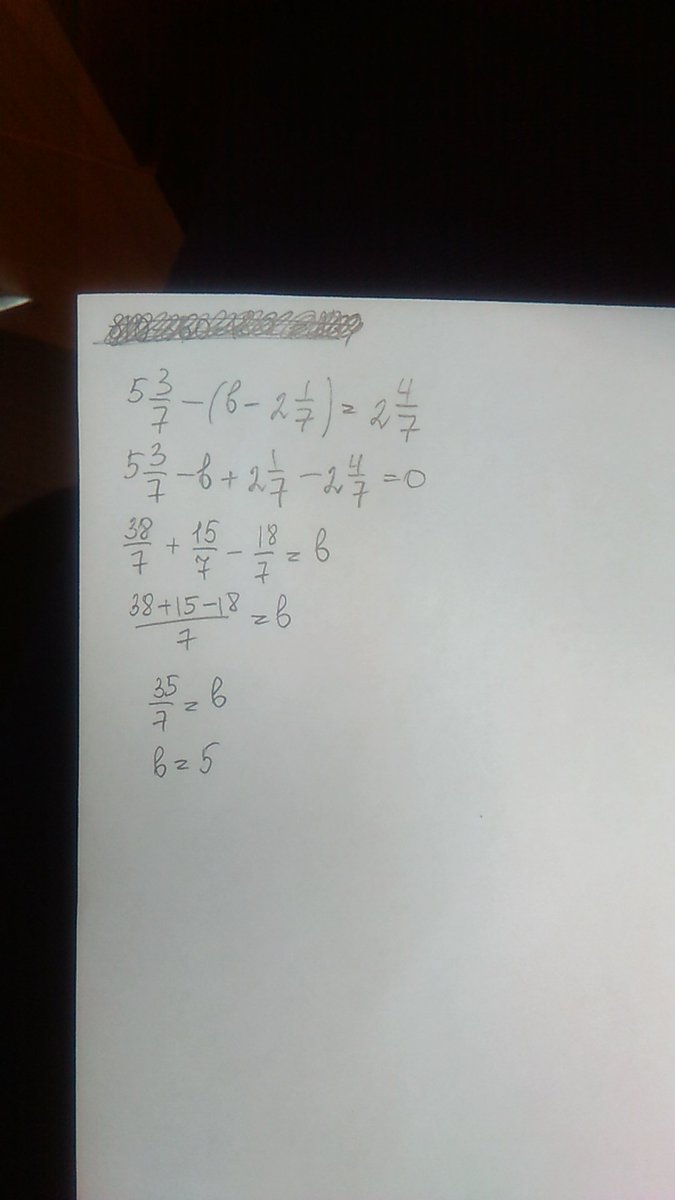 5 3/7 - (b - 2 1/7) = 2 4/7
5 3/7 - b + 2 1/7 - 2 4/7 = 0
38/7 + 15/7 - 18/7 = b
(38+15-18)/7 = b
35/7 = b
b = 5